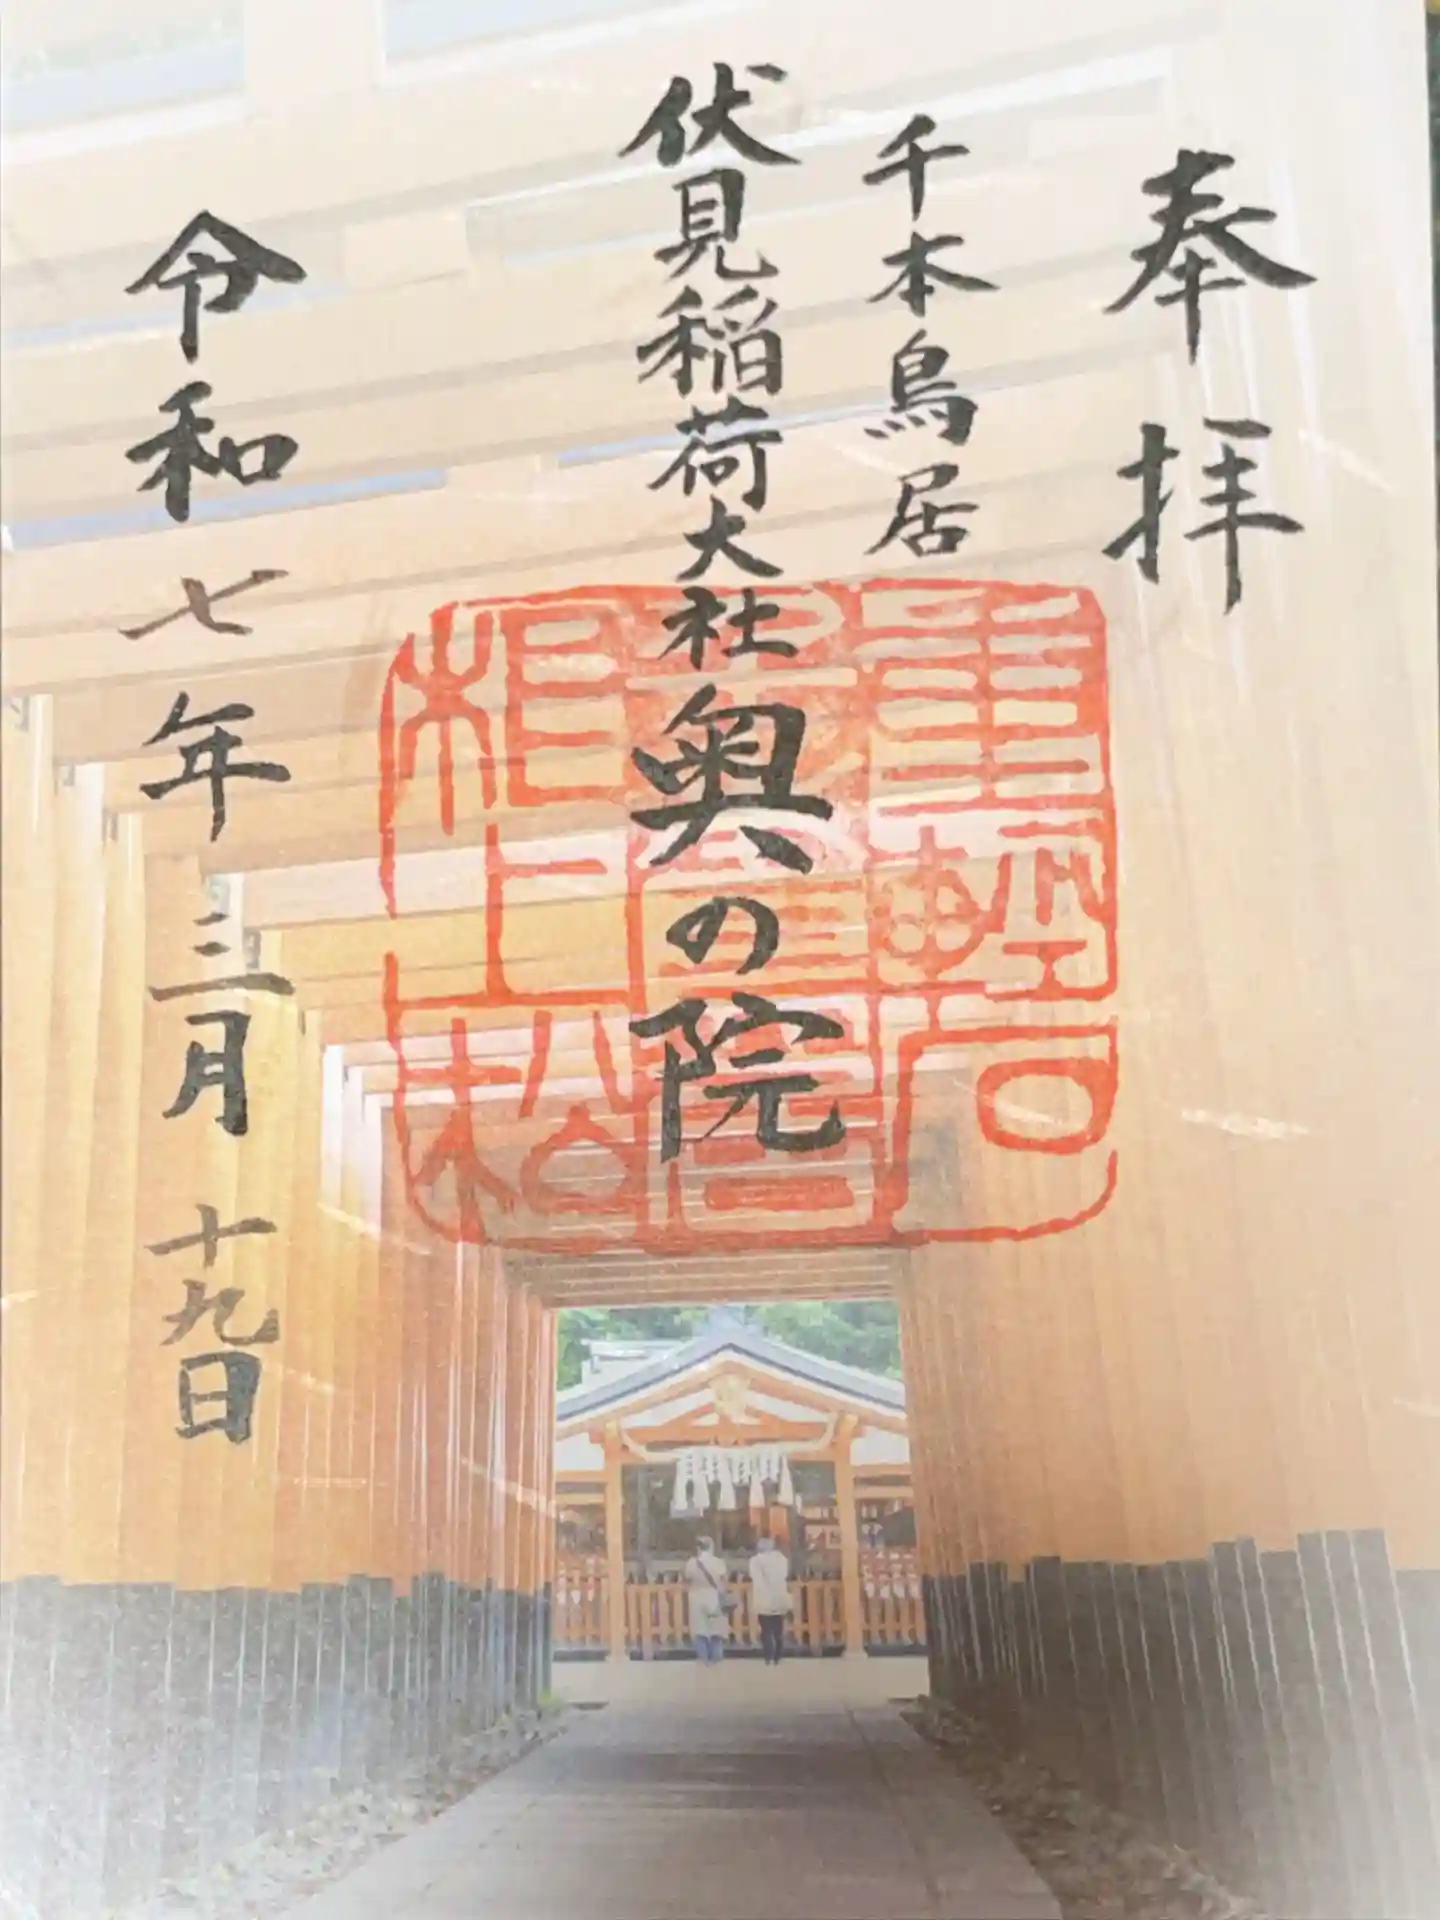 奉拝
千本鳥居
伏見稲荷大社奥の院
令和七年三月十九日